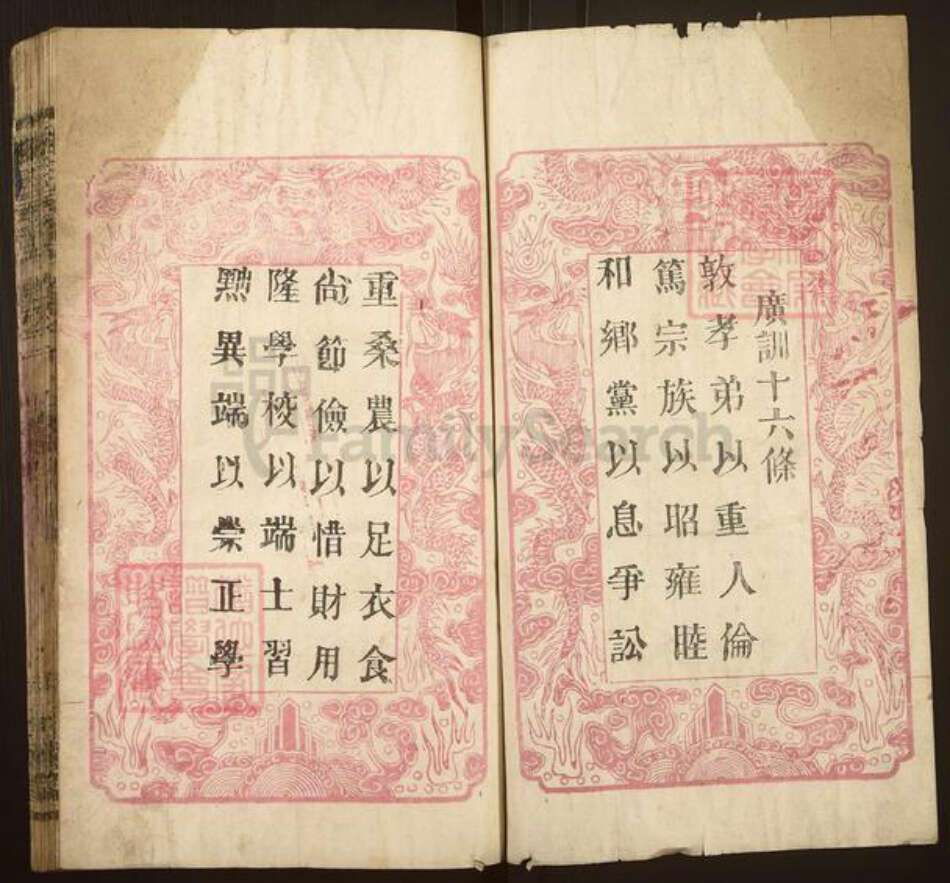 廣訓十六條
敦孝弟以重人倫
篤宗族以昭雍睦
和鄉黨以息爭訟
重桑農以足衣食
尙節儉以惜財用
隆學校以端士習
黜異端以崇正學
FamilySearch